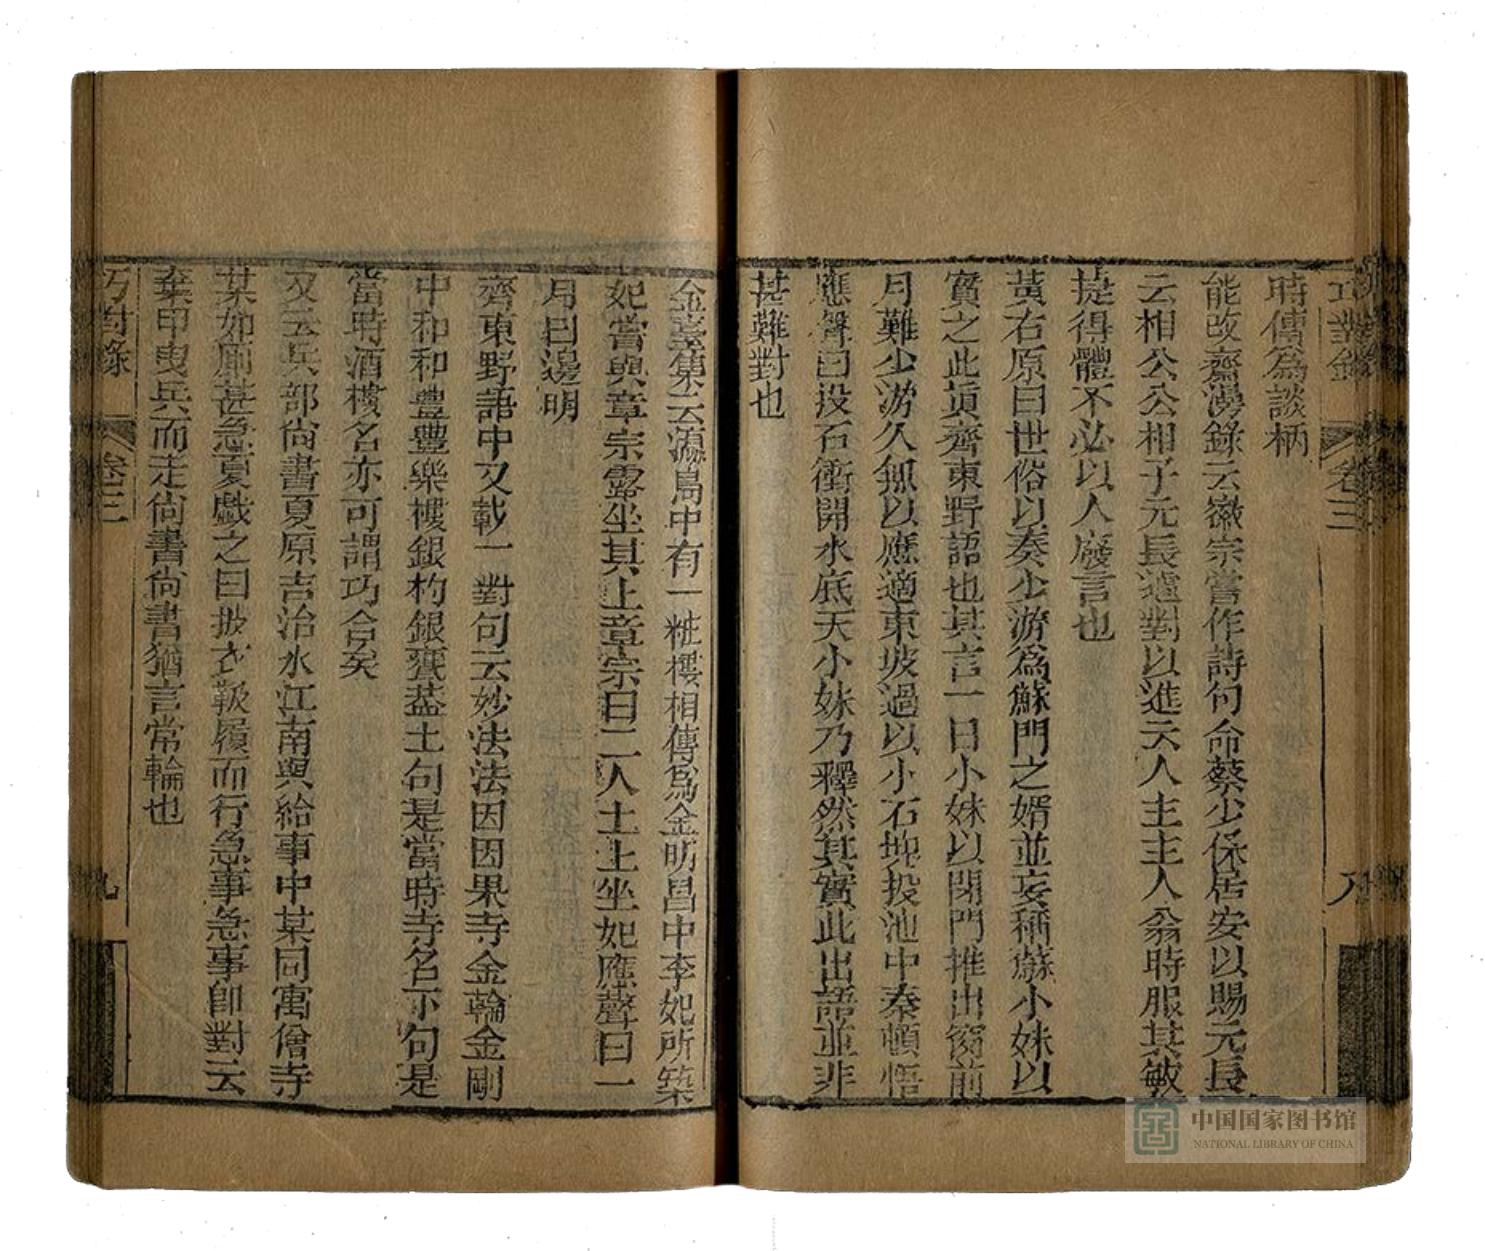 巧對錄 卷三 八
時傳為談柄
能改齋漫錄云徽宗嘗作詩句命蔡少保居安以賜元長
云相公公相子元長遽對以進云人主主人翁時服其敏
捷得體不必以人廢言也
黃右原曰世俗以秦少游為蘇門之婿並妄稱蘇小妹以
實之此真齊東野語也其言一日小妹以閉門推出窗前
月難少游久無以應適東坡過以小石拋投池中秦頓悟
應聲曰投石衝開水底天小妹乃釋然其實此出語並非
甚難對也
金臺集云瀛島中有一粧樓相傳為金明昌中李妃所築
妃嘗與章宗露坐其上章宗曰二人土上坐妃應聲曰一
月日邊明
齊東野語中又載一對句云妙法法因因果寺金輪金剛
中和和豐豐樂樓銀杓銀甕葢上句是當時寺名下句是
當時酒樓名亦可謂巧合矣
又云兵部尚書夏原吉治水江南與給事中某同寓僧寺
某如廁甚急夏戲之曰披衣靸履而行急事急事即對云
棄甲曳兵而走尚書尚書猶言常輪也
巧對錄 卷三 九
中国国家图书馆
NATIONAL LIBRARY OF CHINA